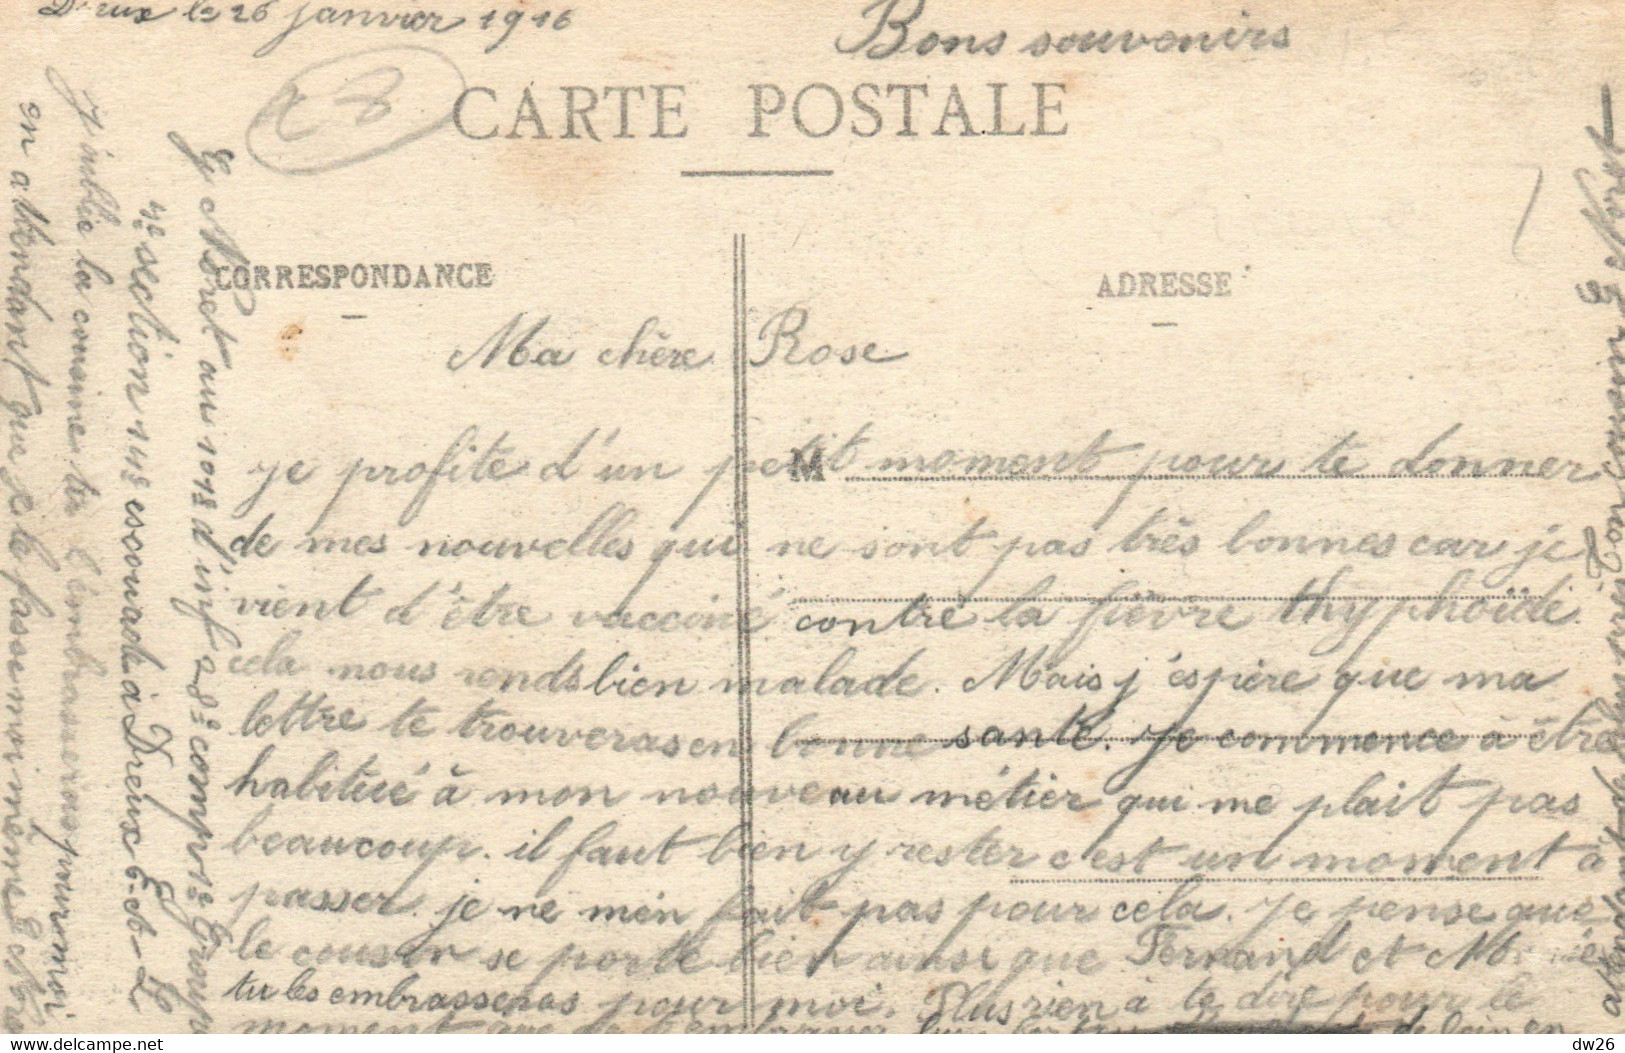 Dreux le 26 janvier 1916
Bons souvenirs
CARTE POSTALE
CORRESPONDANCE
ADRESSE
Ma chère Rose
M
je profite d'un petit moment pour te donner
de mes nouvelles qui ne sont pas très bonnes car je
vient d'être vacciné contre la fièvre thyphoïde
cela nous rends bien malade. Mais j'espère que ma
lettre te trouveras en bonne santé. Je commence à être
habitué à mon nouveau métier qui me plait pas
beaucoup. il faut bien y rester c'est un moment à
passer. je ne m'en fait pas pour cela. Je pense que
le cousin se porte bien ainsi que Fernand et
tu les embrasseras pour moi. Plus rien à te dire pour le
moment que de t'embrasser bien de loin en
en attendant que je le fasse moi même
J'oublie la cousine tu l'embrasseras pour moi
4e section 14e escouade à Dreux E-et-L
G Noret au 101e d'inf 28e comp 1e Group
dw26